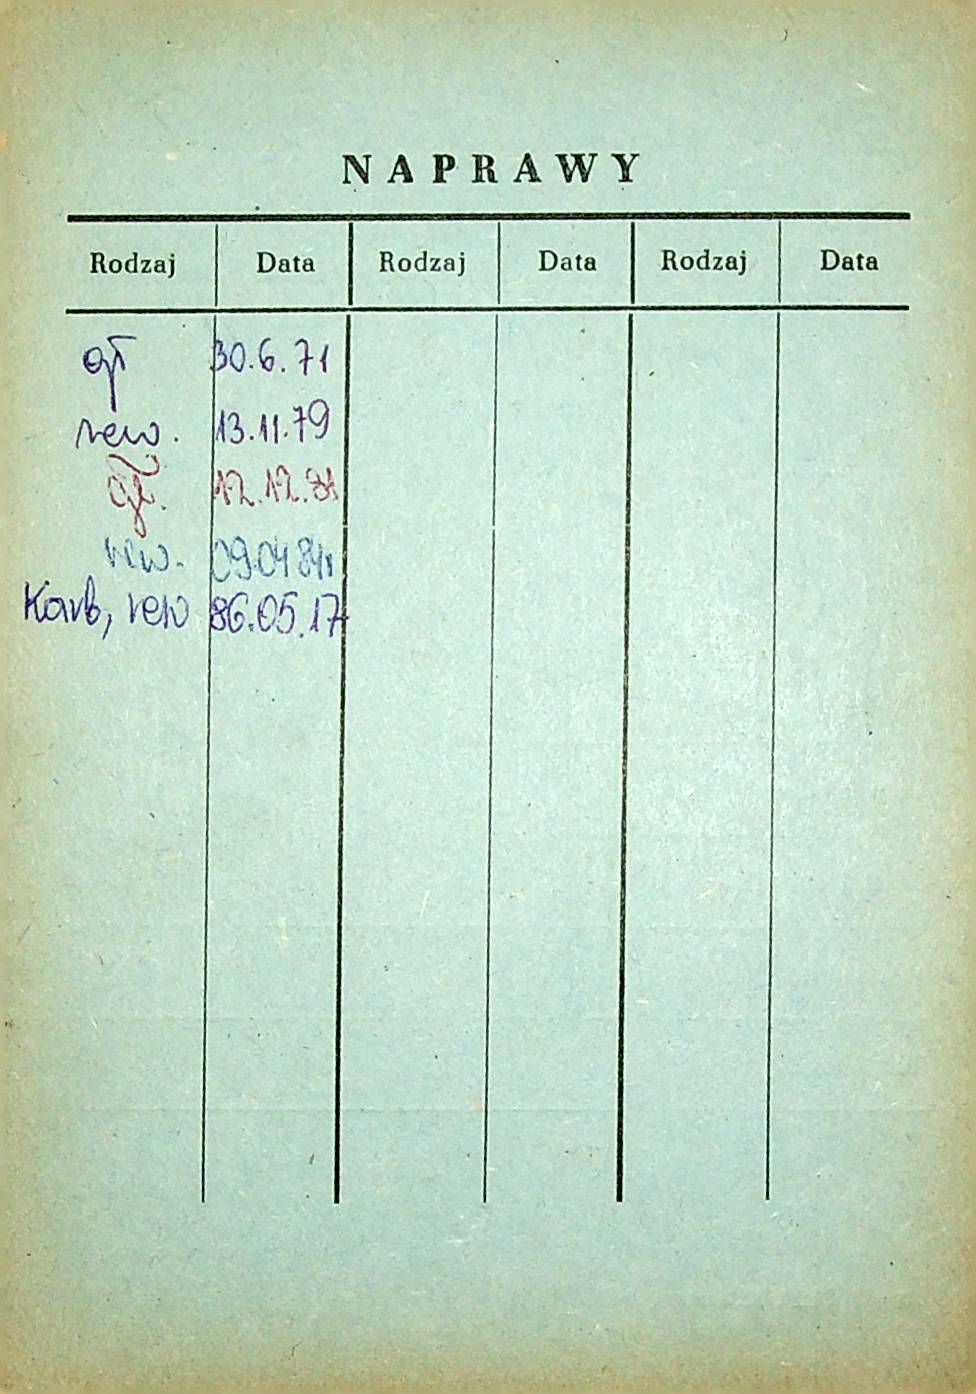 NAPRAWY
Rodzaj Data Rodzaj Data Rodzaj Data
gł 30.6.71
rew. 13.11.79
gł. 12.12.81
rew. 09.04 84r
Karb, rew 86.05.17